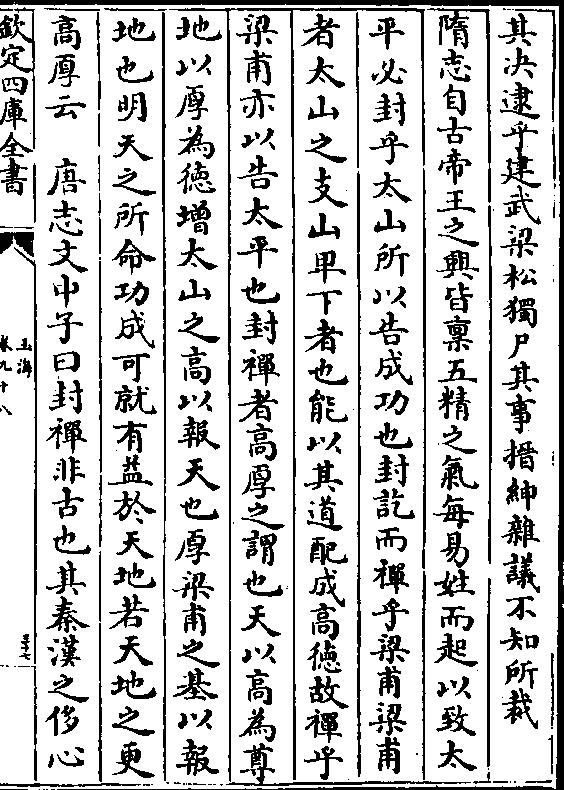 其决逮乎建武梁松獨尸其事搢紳雜議不知所裁
隋志自古帝王之興皆稟五精之氣每易姓而起以致太
平必封乎太山所以告成功也封訖而禪乎梁甫梁甫
者太山之支山卑下者也能以其道配成高德故禪乎
梁甫亦以告太平也封禪者高厚之謂也天以高為尊
地以厚為德增太山之高以報天也厚梁甫之基以報
地也明天之所命功成可就有益於天地若天地之更
高厚云　唐志文中子曰封禪非古也其秦漢之侈心
欽定四庫全書
玉海
卷九十八
三十七